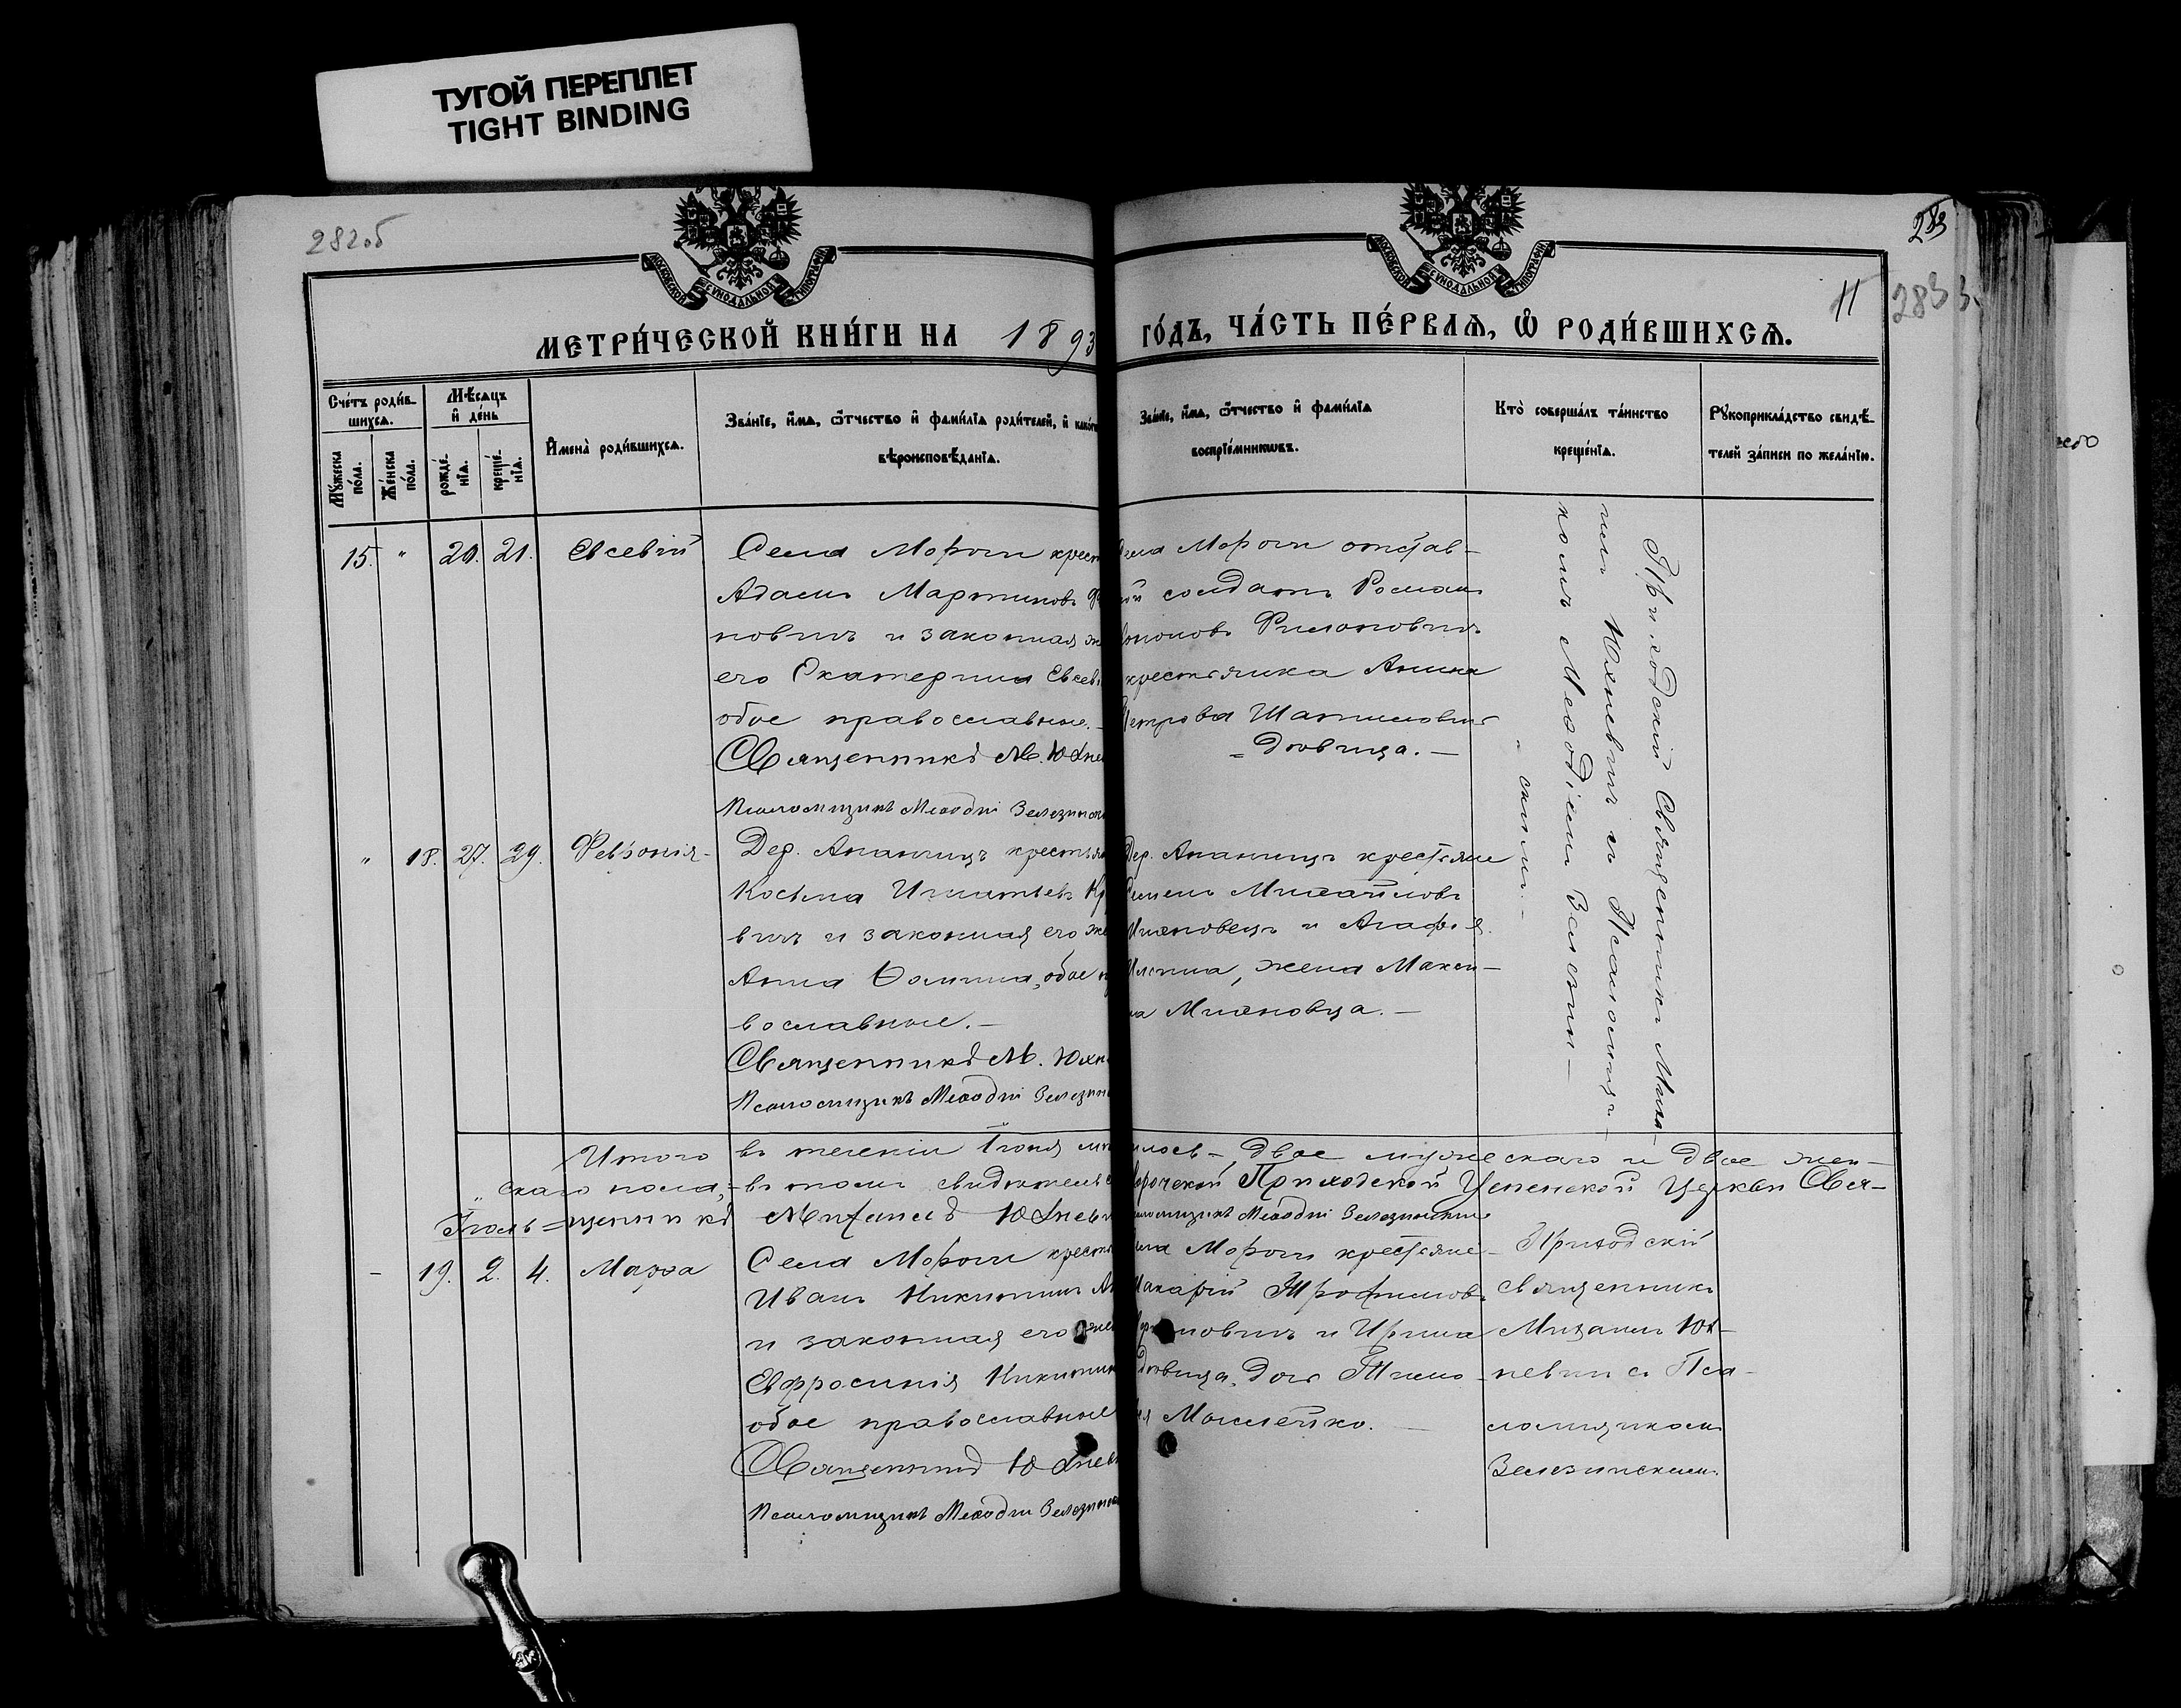 ТУГОЙ ПЕРЕПЛЕТ
TIGHT BINDING
282об
283
283
11
МОСКОВСКОЙ СѴНОДАЛЬНОЙ ТИПОГРАФІИ
МОСКОВСКОЙ СѴНОДАЛЬНОЙ ТИПОГРАФІИ
МЕТРИ́ЧЕСКОЙ КНИ́ГИ НА 1893
ГО́ДЪ, ЧА́СТЬ ПЕ́РВАѦ, Ѽ РОДИ́ВШИХСѦ.
Сче́тъ роди́в-
шихсѧ.
Мꙋ́жеска по́ла.
Же́нска по́ла.
Мѣ́сѧцъ
и҆ де́нь
рожде́-
нїѧ.
креще́-
нїѧ.
И҆мена̀ роди́вшихсѧ.
Зва́нїе, и҆́мѧ, ѻ҆́тчество и҆ фами́лїѧ роди́телей, и҆ како́гѡ
вѣроисповѣ́данїѧ.
Зва́нїе, и҆́мѧ, ѻ҆́тчество и҆ фами́лїѧ
воспрїе́мникѡвъ.
Кто̀ соверша́лъ та́инство
креще́нїѧ.
Рꙋкоприкла́дство свидѣ́-
телей за́писи по жела́нїю.
15. " 20. 21. Евсевій
Села Морочи крест
Адамъ Мартиновъ
новичъ и законная ж
его Екатерина Евсев
обое православные.-
Священникъ М. Юхнев
Псаломщикъ Меѳодій Зелезинск
Села Морочи отстав-
ой солдатъ Роман
Филоновичъ
крестьянка Анна
Петрова
Вдовица.-
Приходскій Священникъ Миха-
илъ Юхневичъ съ Псаломщи-
комъ Меѳодіемъ Зелезин-
скимъ.-
" 18. 27. 29. Февронія
Дер. Ананчицъ крестьян
Косьма Игнатьевъ Кр
вичъ и законная его же
Анна Ѳомина, обое п
вославные.-
Священникъ М. Юхн
Псаломщикъ Меѳодій Зелезин
Дер. Ананчицъ крестьяне
Семенъ Михайловъ
Михновецъ и Агафія
жена Макси-
ма Михновца.-
Итого въ теченіи Іюня
лось-двое мужескаго и двое жен-
скаго пола,-въ томъ свидѣтельс
Морочской Приходской Успенской Церкви Свя-
щенникъ Михаилъ Юхневи
Псаломщикъ Меѳодій Зелезинскій
Іюль
- 19. 2. 4. Марѳа
Села Морочи крестья
Иванъ Никитинъ
и законная его же
Евфросинія Никитин
обое православные
Священникъ Юхнев
Псаломщикъ Меѳодій Зелезинск
Села Морочи крестьяне
Макарій Трофимовъ
новичъ и Ирина
вдовица, дочь Тимо
Мошейко.-
Приходскій
священникъ
Михаилъ Юх-
невичъ съ Пса-
ломщикомъ
Зелезинскимъ.